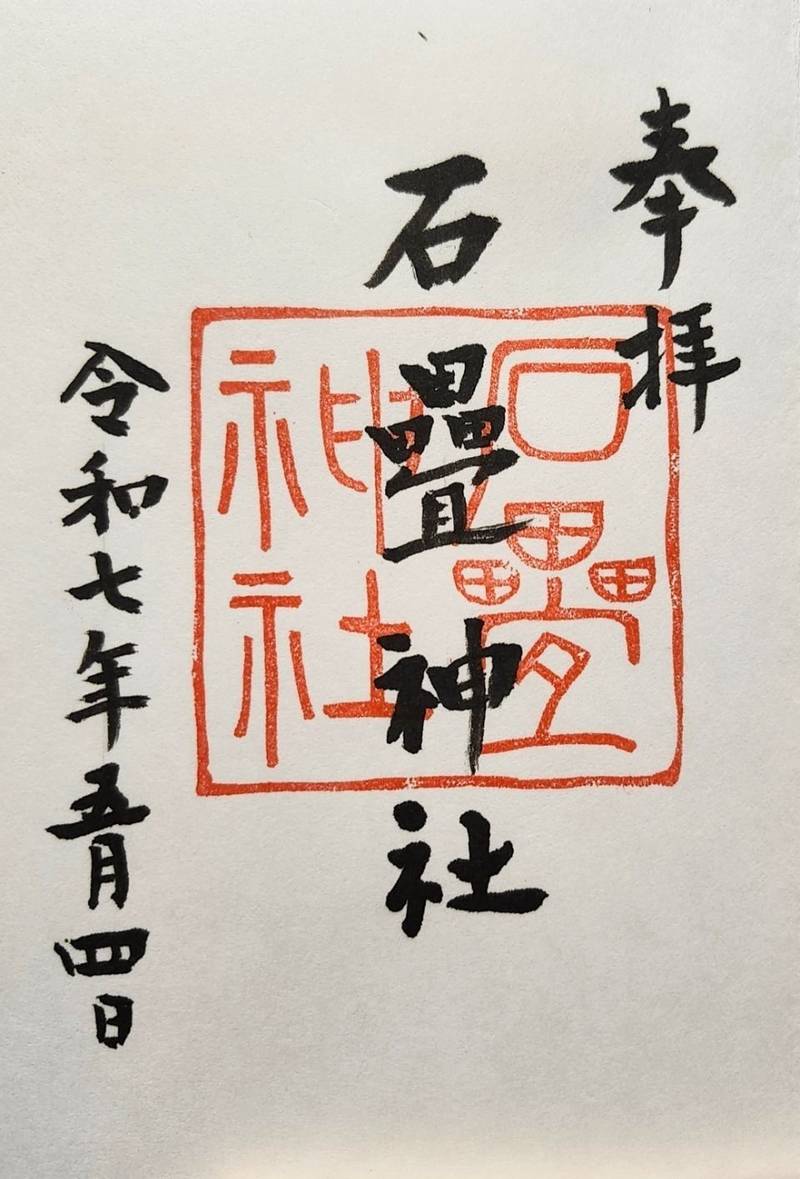 奉拝
石疊神社
石疊
神社
令和七年五月四日